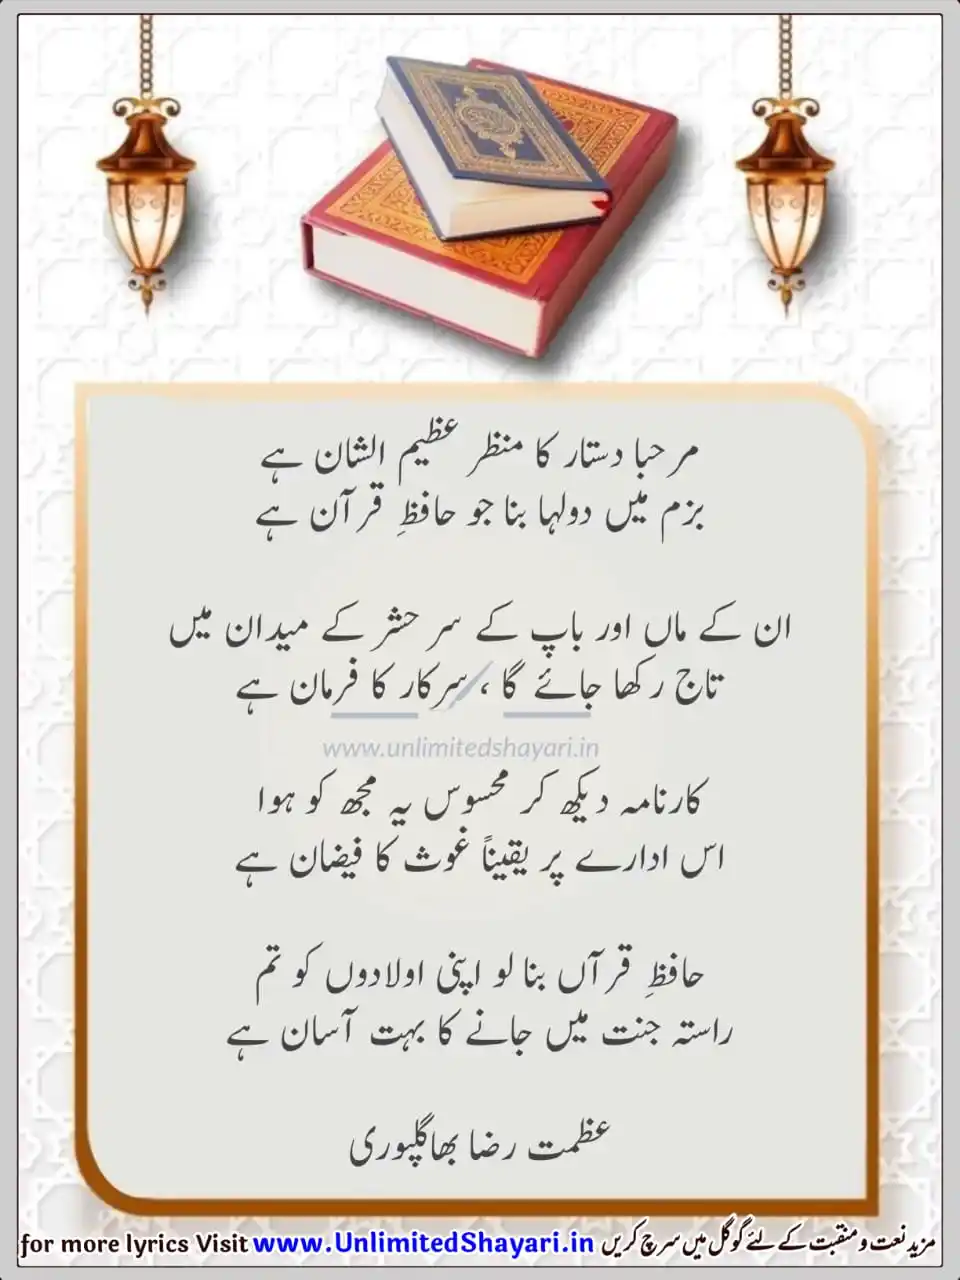 مرحبا دستار کا منظر عظیم الشان ہے
بزم میں دولہا بنا جو حافظِ قرآن ہے
ان کے ماں اور باپ کے سر حشر کے میدان میں
تاج رکھا جائے گا ، سرکار کا فرمان ہے
www.unlimitedshayari.in
کارنامہ دیکھ کر محسوس یہ مجھ کو ہوا
اس ادارے پر یقیناً غوث کا فیضان ہے
حافظِ قرآں بنا لو اپنی اولادوں کو تم
راستہ جنت میں جانے کا بہت آسان ہے
عظمت رضا بھاگلپوری
for more lyrics Visit www.UnlimitedShayari.in مزید نعت و منقبت کے لئے گوگل میں سرچ کریں